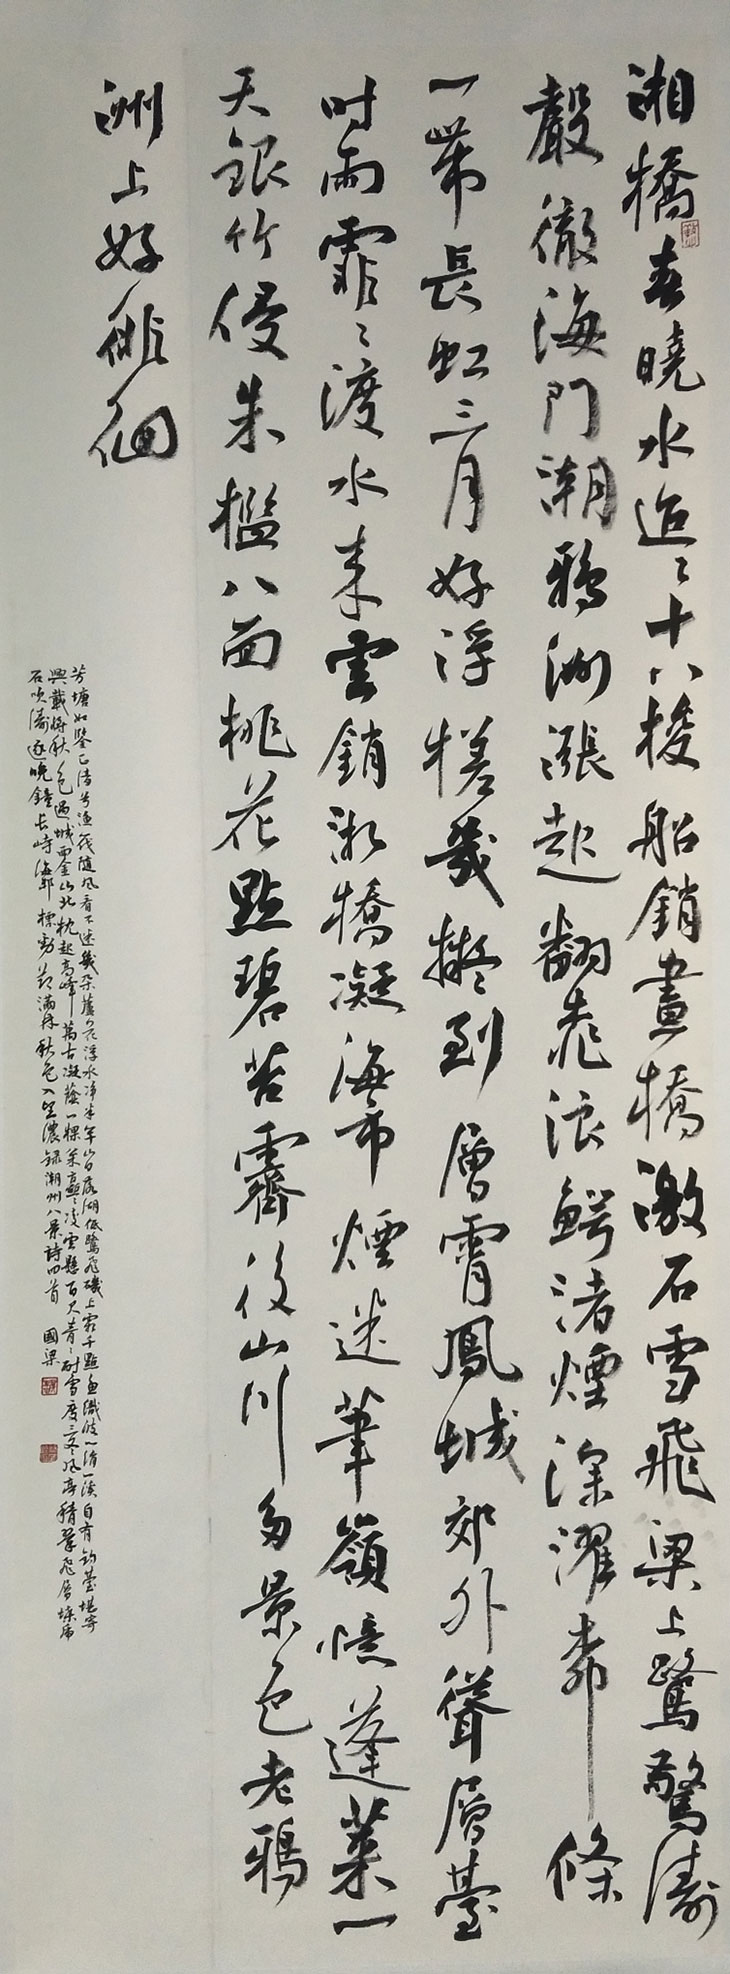 湘橋春曉水迢〻十八梭船銷畫橋激石雪飛梁上鷺驚濤
聲徹海門潮鴉洲漲起翻桃浪鱷渚煙深濯柳條
一帶長虹三月好浮槎幾擬到層霄鳳城郊外聳層臺
時雨霏〻渡水來雲銷湘橋凝海市煙迷筆嶺憶蓬萊一
天銀竹侵朱檻八面桃花點碧苔霽後山川多景色老鴉
洲上好徘徊
芳塘如鑒已清兮漁筏隨風看不迷幾朵蘆花浮水净半年山色落湖低鷺飛磯上霜千點魚漾波心滑一溪自有釣臺堪寄
興載將秋色過城西金山北枕起高峰萬古凝蔭一樑棻矗〻凌雲懸百尺青〻耐雪度三冬風亭積翠飛層
石吹濤逐晚鐘長峙海邦標勁節滿林秋色入望濃録潮州八景詩四首 國梁